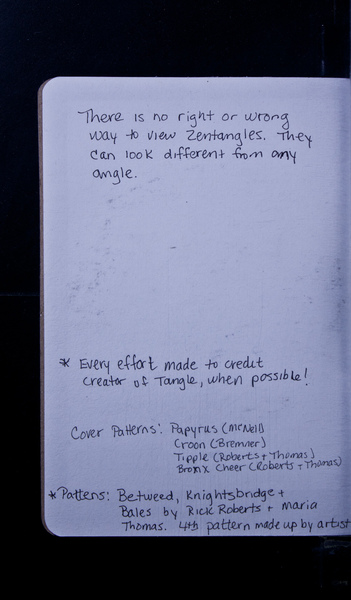 There is no right or wrong
way to view Zentangles. They
can look different from any
angle.
* Every effort made to credit
creator of Tangle, when possible!
Cover Patterns: Papyrus (McNeill)
Croon (Bremner)
Tipple (Roberts + Thomas)
Bronx Cheer (Roberts + Thomas)
* Pattens: Betweed, Knightsbridge +
Bales by Rick Roberts + Maria
Thomas. 4th pattern made up by artist